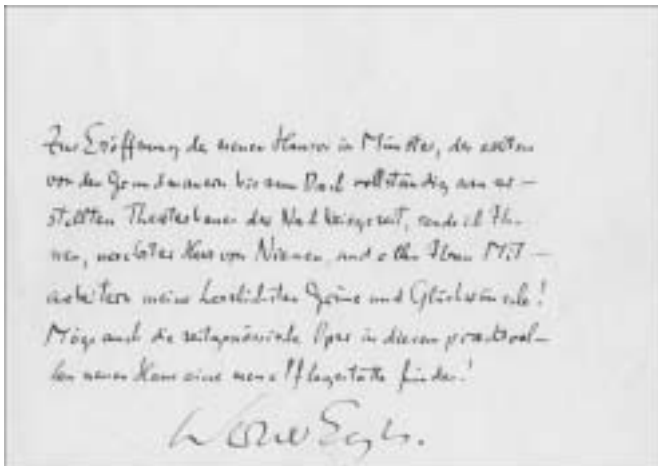 Zur Eröffnung des neuen Hauses in Münster, des ersten
von den Grundmauern bis zum Dach vollständig neu er-
stellten Theaterbaues der Nachkriegszeit, sende ich Ih-
nen, verehrter Herr von Niessen, und allen Ihren Mit-
arbeitern meine herzlichsten Grüße und Glückwünsche!
Möge auch die zeitgenössische Oper in diesem prachtvol-
len neuen Haus eine neue Pflegestätte finden!
Werner Egk.